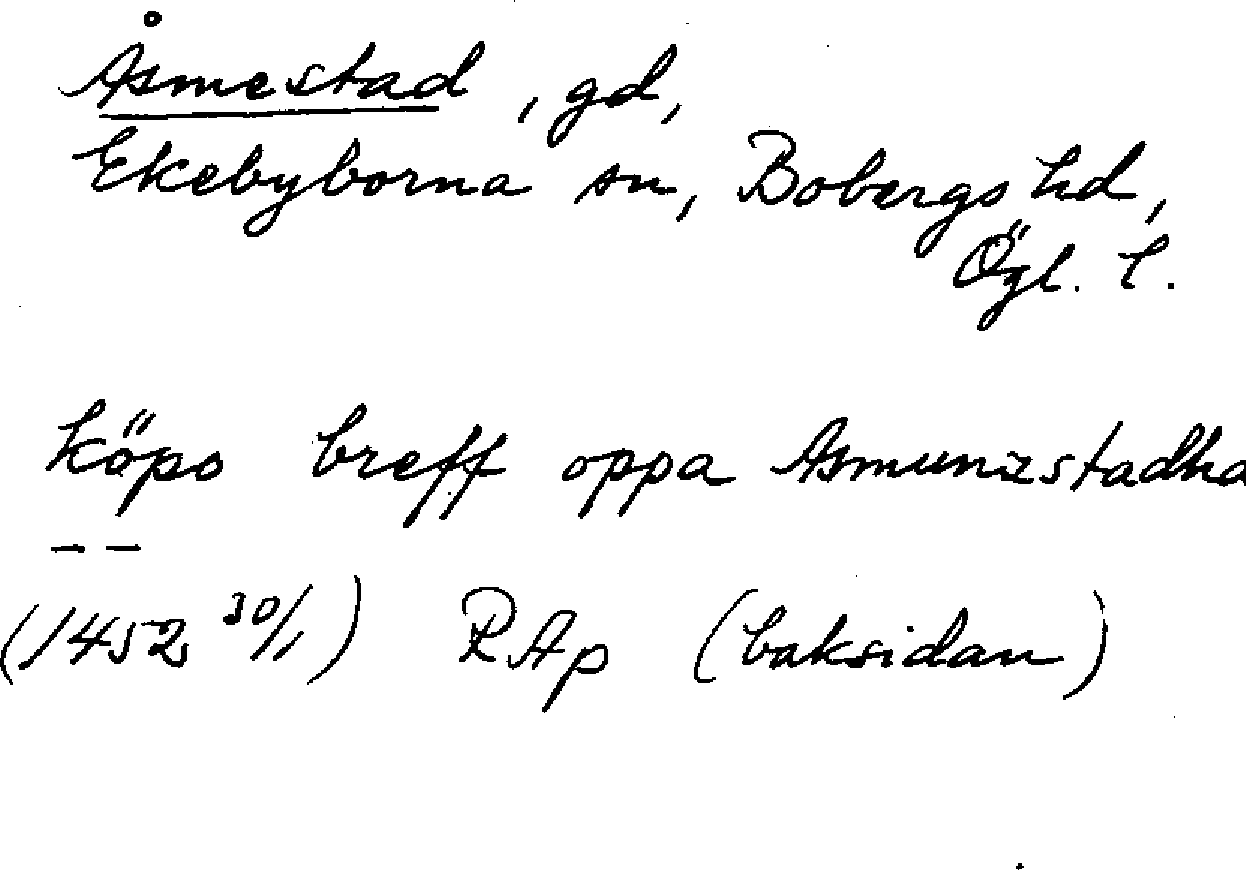 Åsmestad, gd,
Ekebyborna sn, Bobergs hd,
Ögl. l.
köpo breff oppa Asmunzstadha
– –
(1452 30/1) RAp (baksidan)